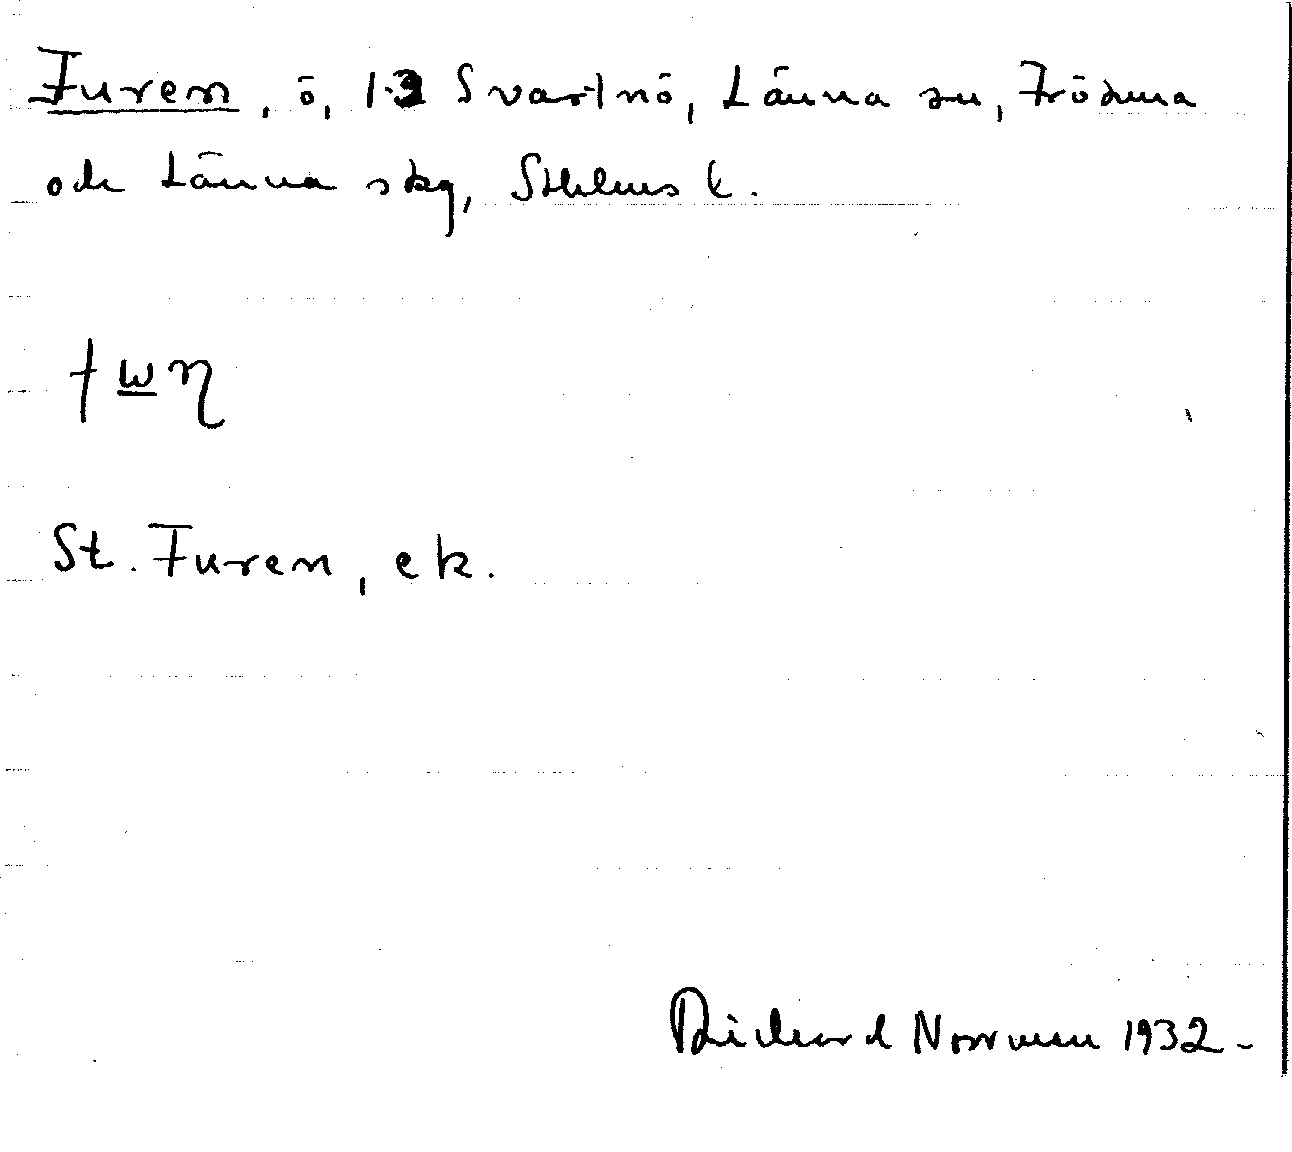 Furen, ö, 1:3 Svartnö, Länna sn, Frötuna
och Länna skg, Sthlms l.
St. Furen, ek.
Richard Norrman 1932